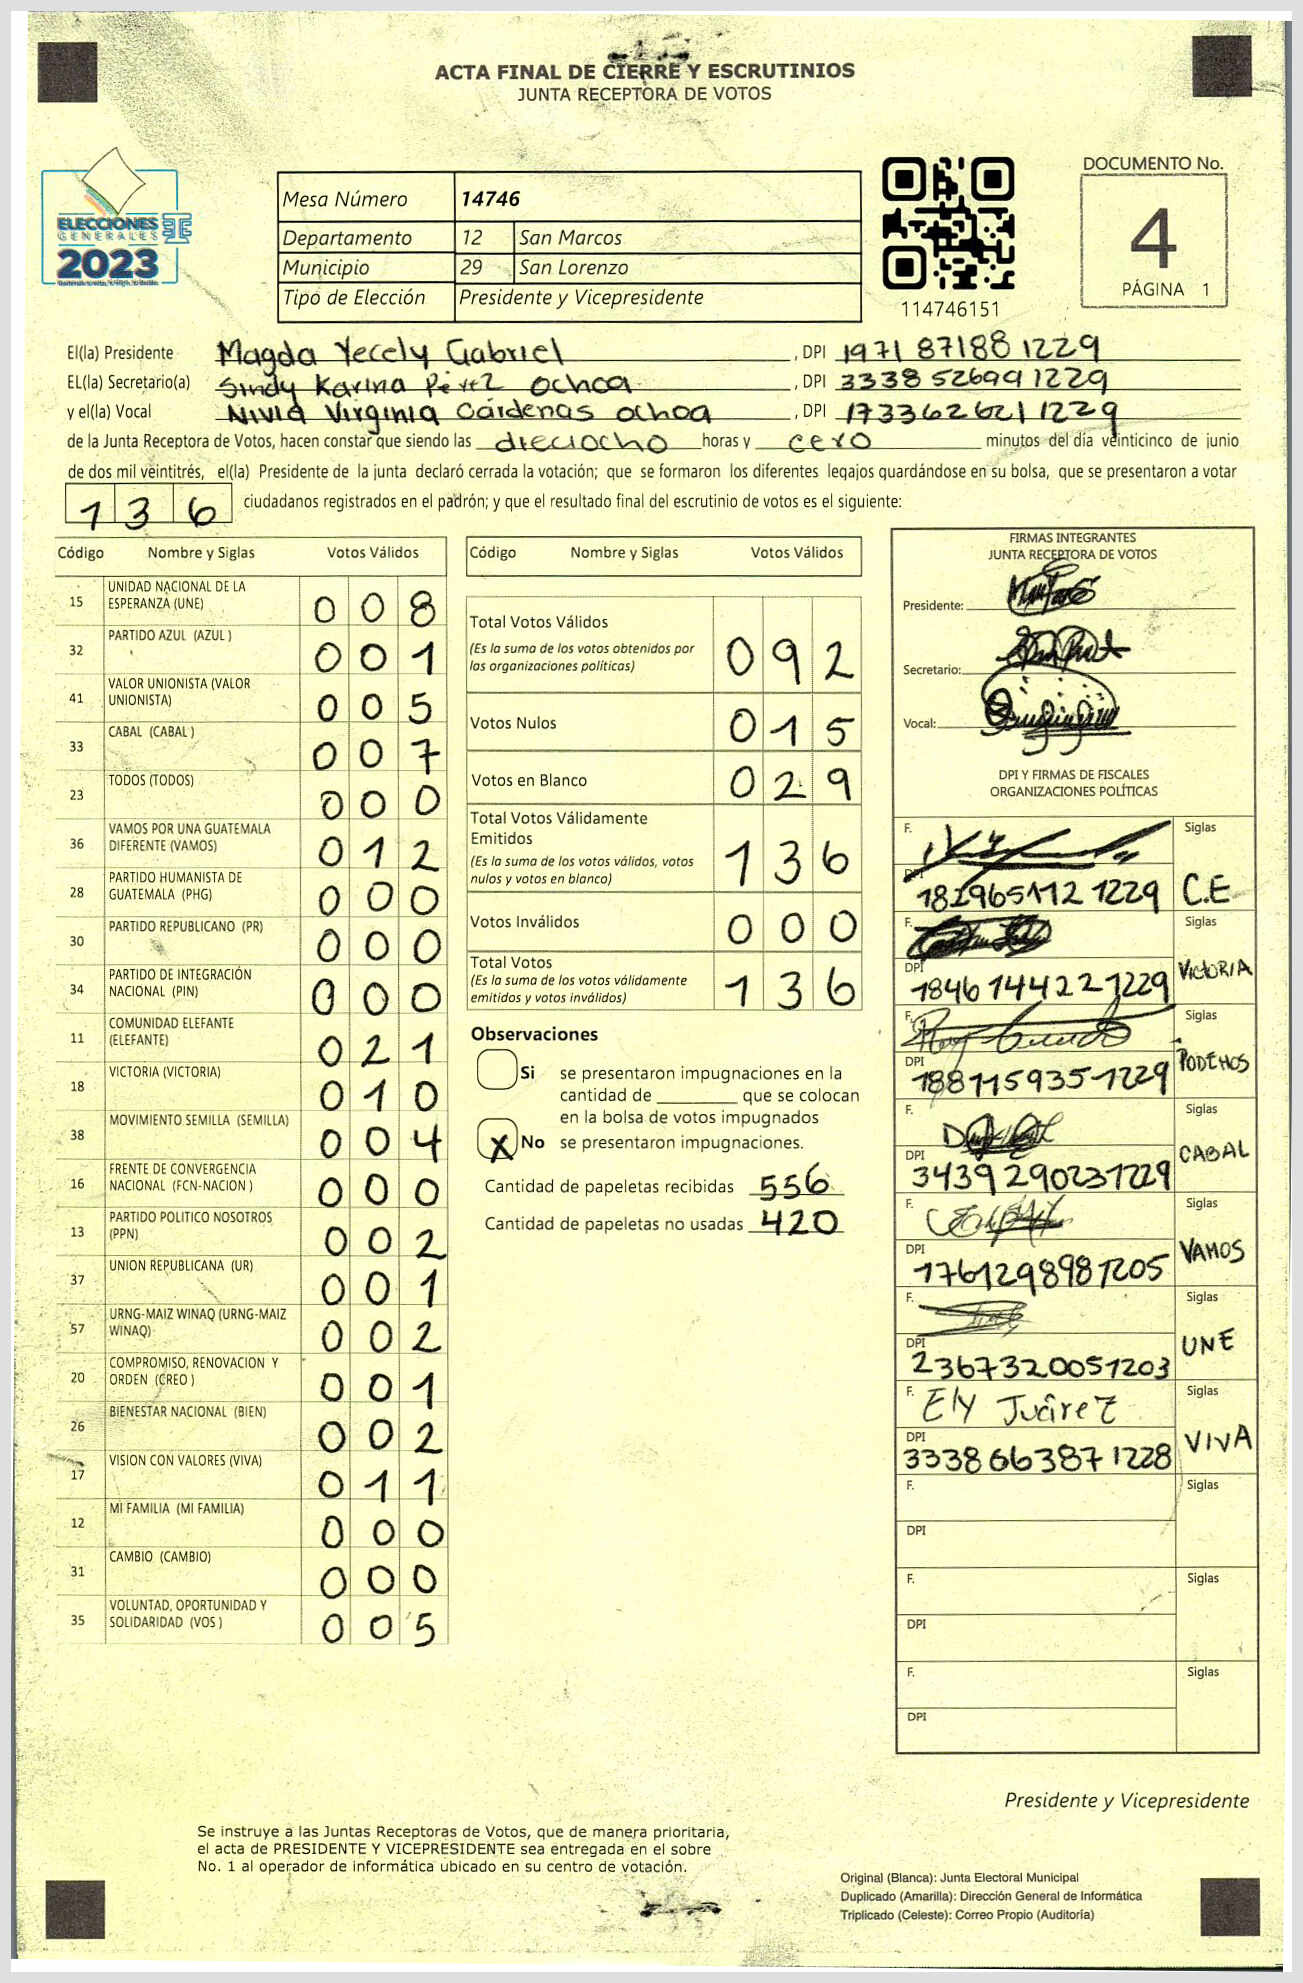 ACTA FINAL DE CIERRE Y ESCRUTINIOS
JUNTA RECEPTORA DE VOTOS
ELECCIONES
GENERALES
2023
TSE
Mesa Número 14746
Departamento 12 San Marcos
Municipio 29 San Lorenzo
Tipo de Elección Presidente y Vicepresidente
114746151
DOCUMENTO No.
4
PÁGINA 1
El(la) Presidente Magda Yecely Gabriel, DPI 1971 87188 1229
EL(la) Secretario(a) Sindy Karina Pérez Ochoa, DPI 3338 52699 1229
y el(la) Vocal Nivia Virginia Cárdenas Ochoa, DPI 173362621 1229
de la Junta Receptora de Votos, hacen constar que siendo las dieciocho horas y cero minutos del día veinticinco de junio
de dos mil veintitrés, el(la) Presidente de la junta declaró cerrada la votación; que se formaron los diferentes legajos quardándose en su bolsa, que se presentaron a votar
136 ciudadanos registrados en el padrón; y que el resultado final del escrutinio de votos es el siguiente:
Código Nombre y Siglas Votos Válidos
15 UNIDAD NACIONAL DE LA ESPERANZA (UNE) 008
32 PARTIDO AZUL (AZUL ) 001
41 VALOR UNIONISTA (VALOR UNIONISTA) 005
33 CABAL (CABAL ) 007
23 TODOS (TODOS) 000
36 VAMOS POR UNA GUATEMALA DIFERENTE (VAMOS) 012
28 PARTIDO HUMANISTA DE GUATEMALA (PHG) 000
30 PARTIDO REPUBLICANO (PR) 000
34 PARTIDO DE INTEGRACIÓN NACIONAL (PIN) 000
11 COMUNIDAD ELEFANTE (ELEFANTE) 021
18 VICTORIA (VICTORIA) 010
38 MOVIMIENTO SEMILLA (SEMILLA) 004
16 FRENTE DE CONVERGENCIA NACIONAL (FCN-NACION ) 000
13 PARTIDO POLITICO NOSOTROS (PPN) 002
37 UNION REPUBLICANA (UR) 001
57 URNG-MAIZ WINAQ (URNG-MAIZ WINAQ) 002
20 COMPROMISO, RENOVACION Y ORDEN (CREO ) 001
26 BIENESTAR NACIONAL (BIEN) 002
17 VISION CON VALORES (VIVA) 011
12 MI FAMILIA (MI FAMILIA) 000
31 CAMBIO (CAMBIO) 000
35 VOLUNTAD, OPORTUNIDAD Y SOLIDARIDAD (VOS ) 005
Código Nombre y Siglas Votos Válidos
Total Votos Válidos 092
(Es la suma de los votos obtenidos por las organizaciones políticas)
Votos Nulos 015
Votos en Blanco 029
Total Votos Válidamente Emitidos 136
(Es la suma de los votos válidos, votos nulos y votos en blanco)
Votos Inválidos 000
Total Votos 136
(Es la suma de los votos válidamente emitidos y votos inválidos)
Observaciones
Si se presentaron impugnaciones en la
cantidad de ________ que se colocan
en la bolsa de votos impugnados
X No se presentaron impugnaciones.
Cantidad de papeletas recibidas 556
Cantidad de papeletas no usadas 420
FIRMAS INTEGRANTES
JUNTA RECEPTORA DE VOTOS
Presidente:
Secretario:
Vocal:
DPI Y FIRMAS DE FISCALES
ORGANIZACIONES POLÍTICAS
F. Siglas
DPI 182965112 1229 C.E
F. Siglas
DPI 1846 14422 1229 VICTORIA
F. Siglas
DPI 188115935 1229 PODEMOS
F. Siglas
DPI 3439 290231229 CABAL
F. Siglas
DPI 1761298981205 VAMOS
F. Siglas
DPI 2367320051203 UNE
F. Ely Juárez Siglas
DPI 3338663871228 VIVA
F. Siglas
DPI
F. Siglas
DPI
F. Siglas
DPI
Presidente y Vicepresidente
Se instruye a las Juntas Receptoras de Votos, que de manera prioritaria,
el acta de PRESIDENTE Y VICEPRESIDENTE sea entregada en el sobre
No. 1 al operador de informática ubicado en su centro de votación.
Original (Blanca): Junta Electoral Municipal
Duplicado (Amarilla): Dirección General de Informática
Triplicado (Celeste): Correo Propio (Auditoría)